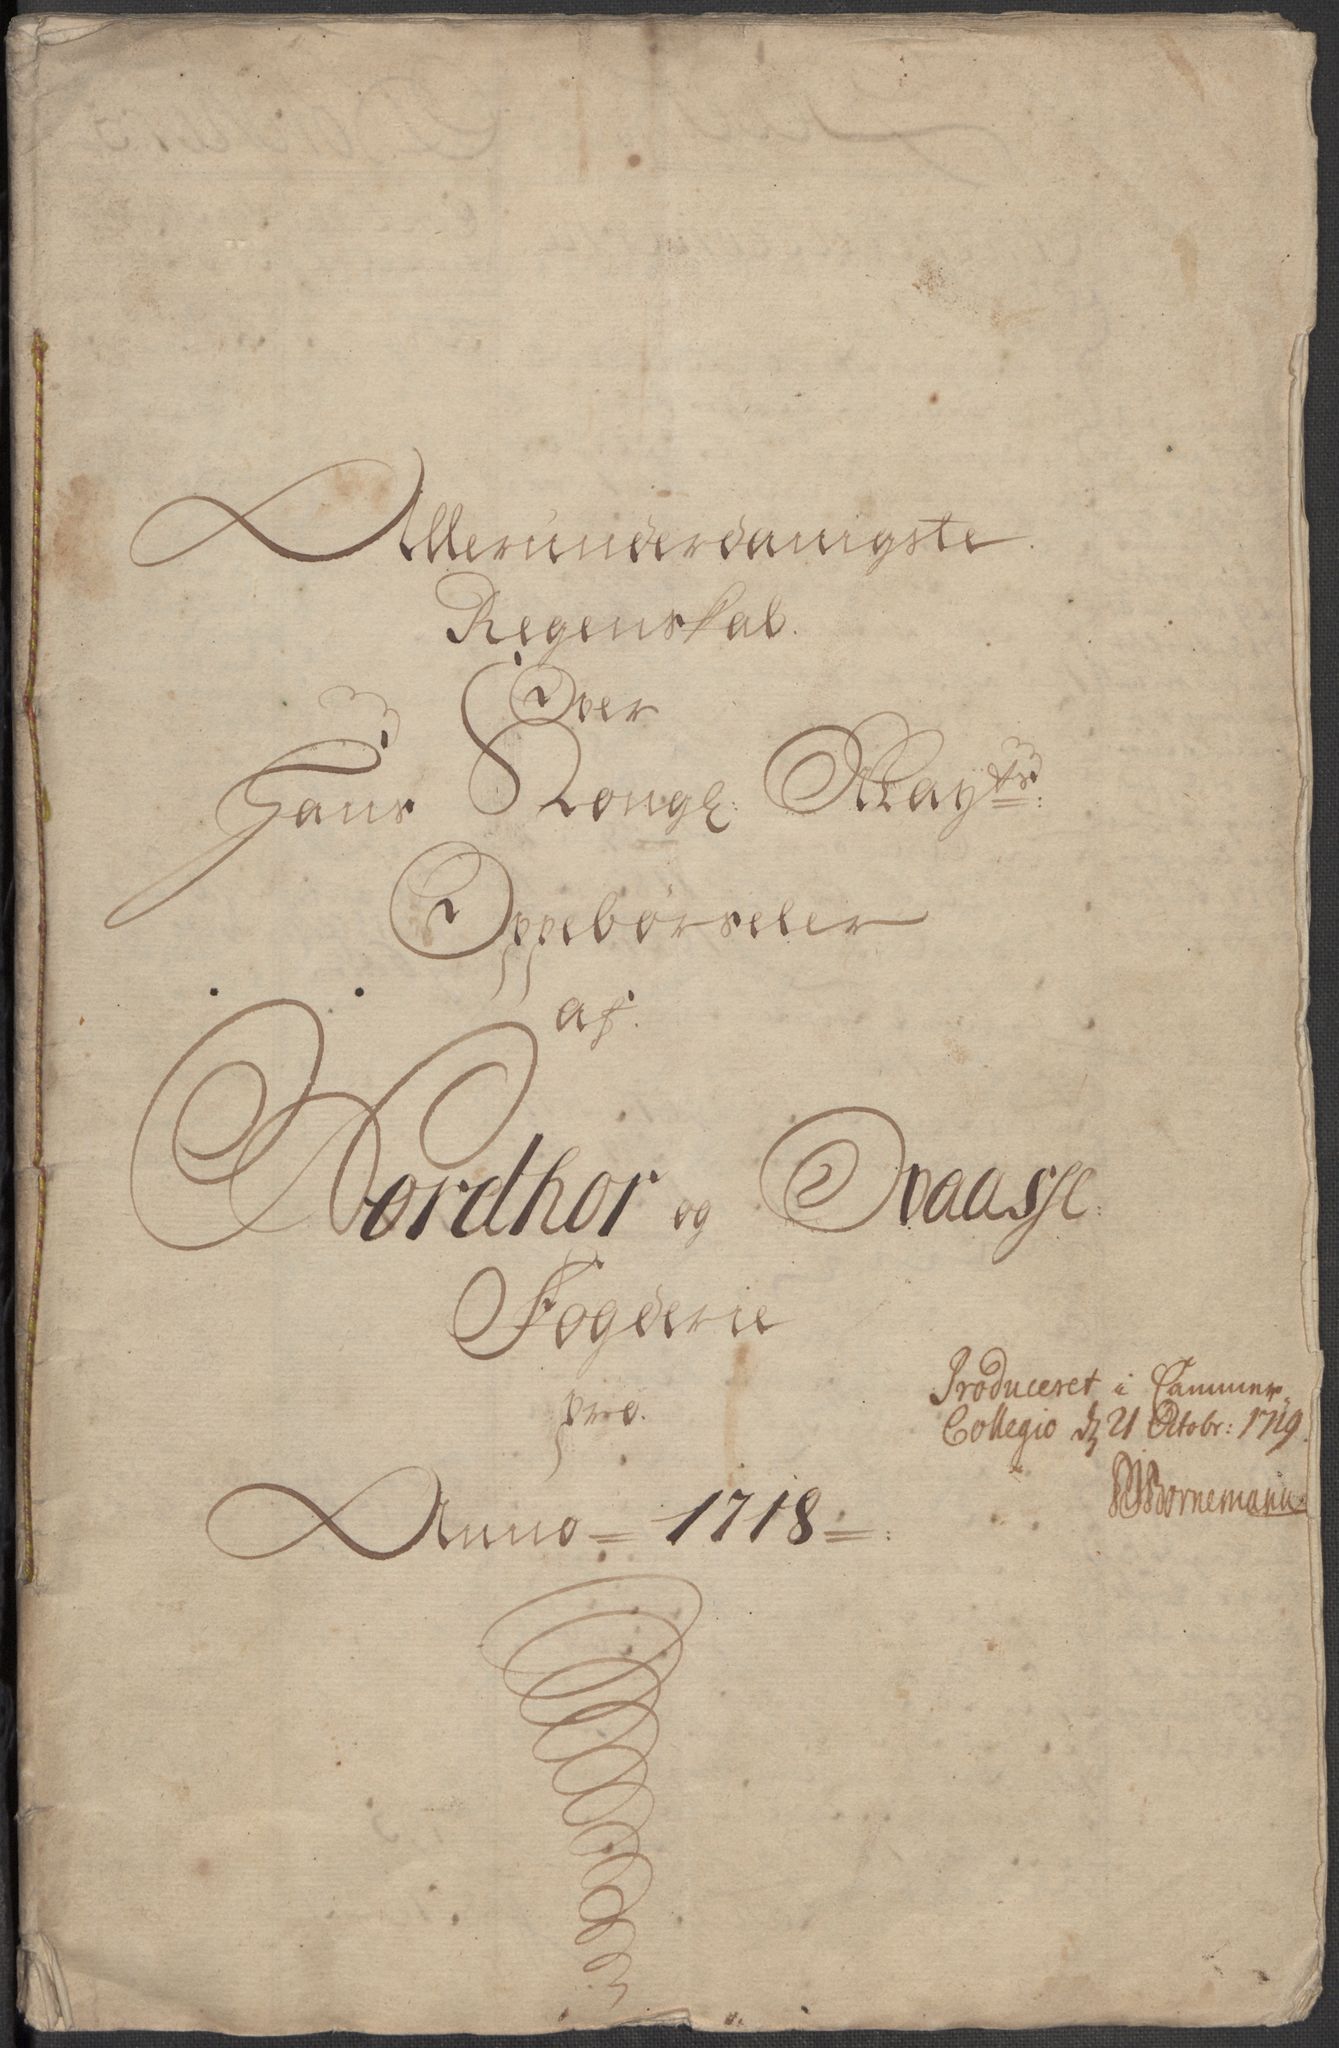 Allerunderdanigste
Regenskal
Over
Hans Kongl: Mayts:
Oppebørseler
af.
Nordhor og Waasse
Fogderie
pro.
Anno = 1718 =
Produceret i Cammer
Collegio d 21 Octobr: 1719.
Bornemann